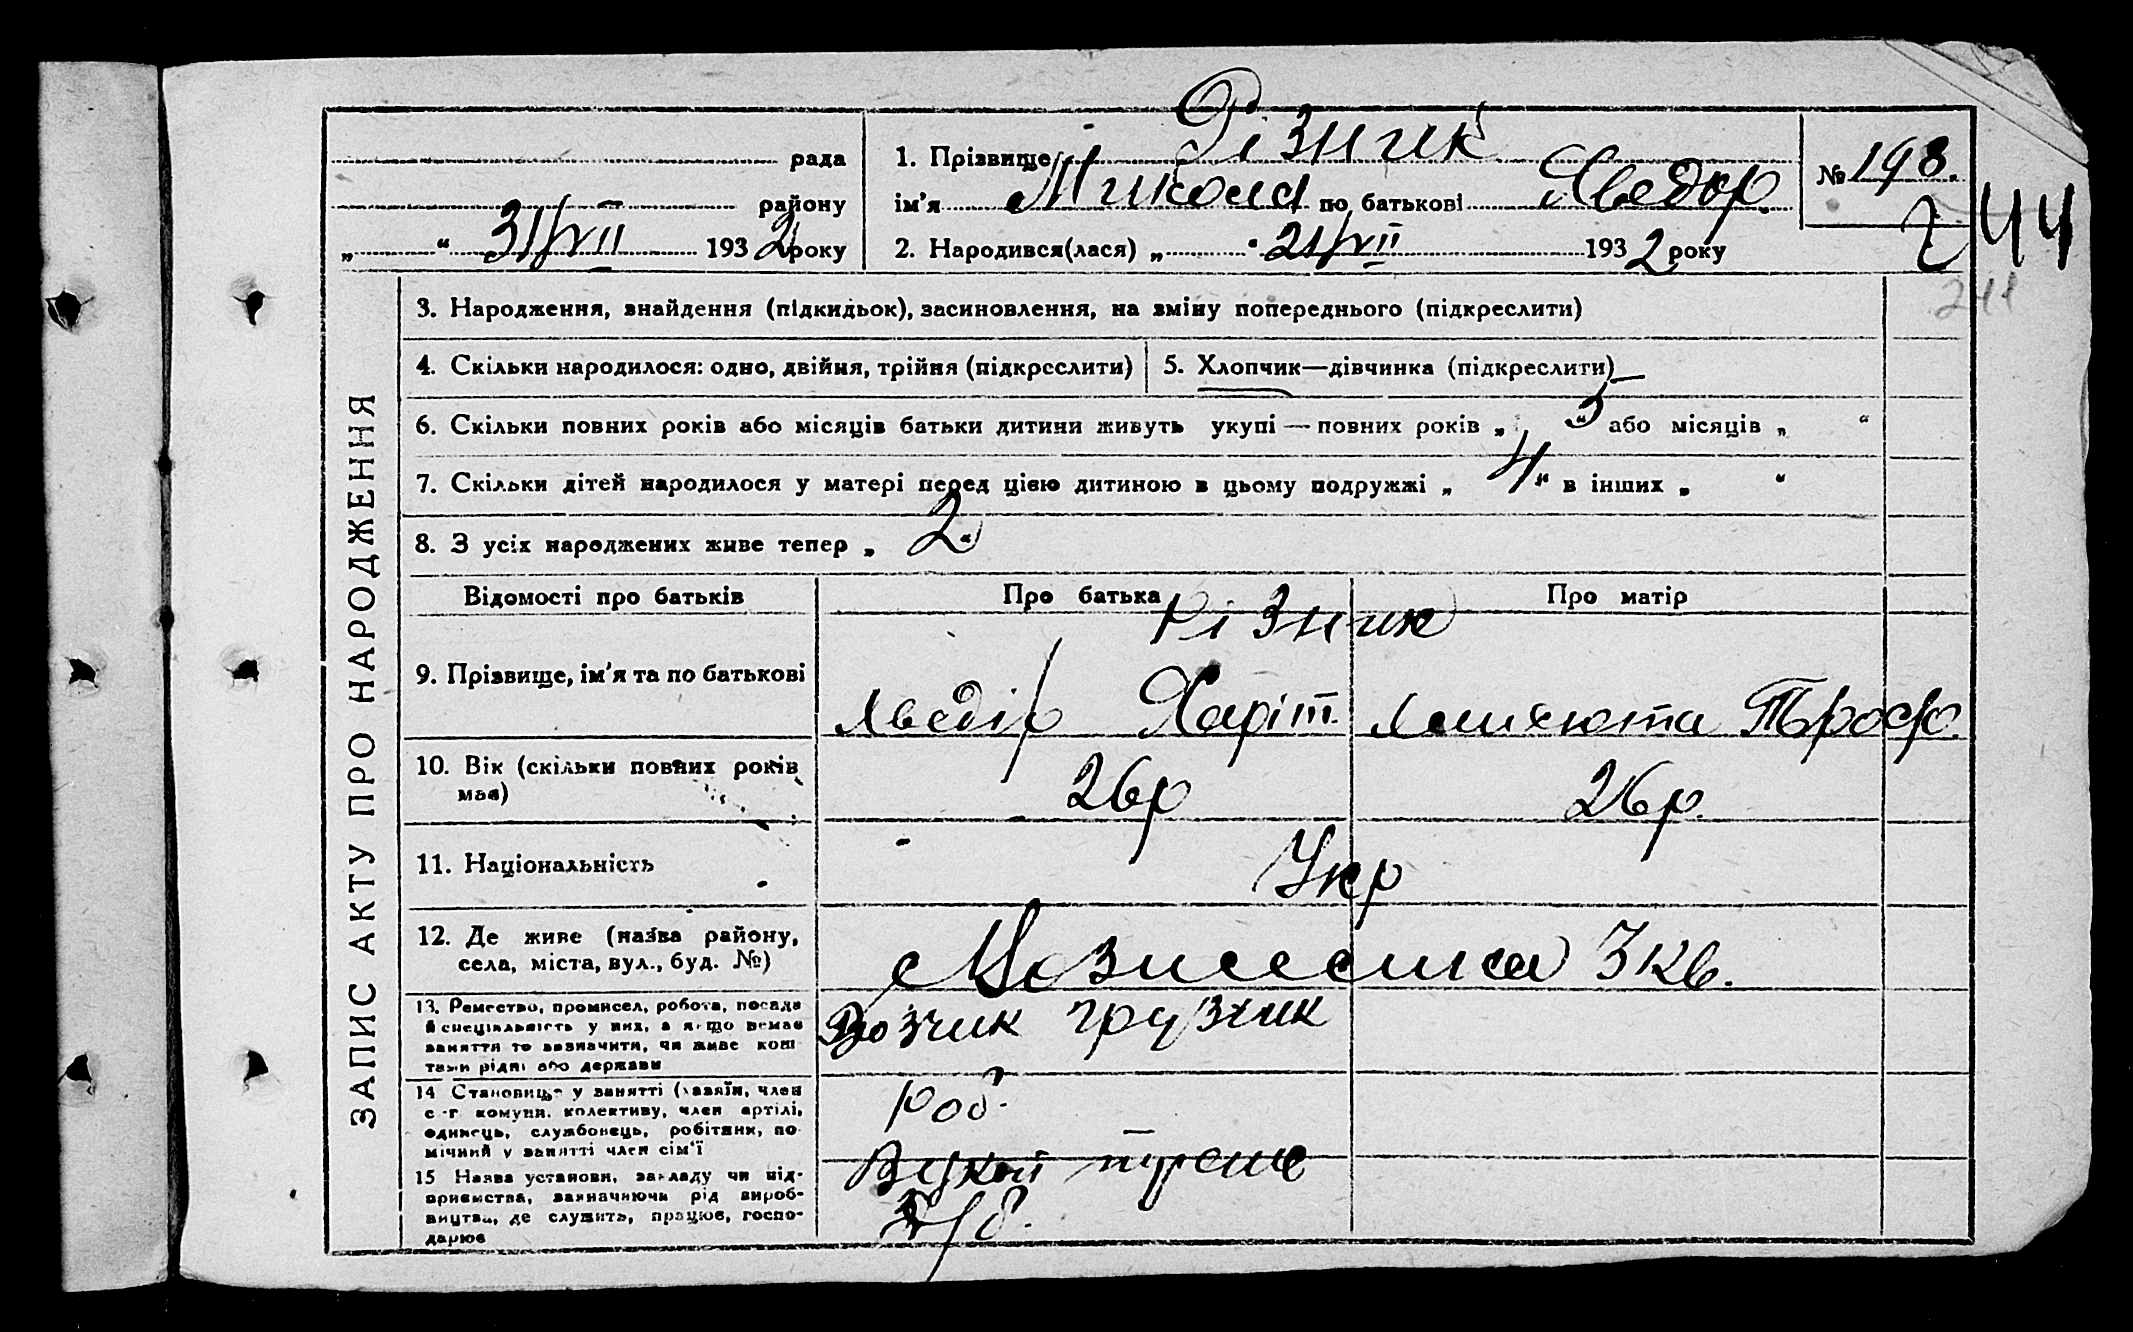 рада
району
„ “ 31/VII 1932 року
1. Прізвище Різник
ім'я Микола по батькові Хведор.
2. Народився(лася) „ “ 21/VII 1932 року
№ 198.
244
244
ЗАПИС АКТУ ПРО НАРОДЖЕННЯ
3. Народження, знайдення (підкидьок), засиновлення, на зміну попереднього (підкреслити)
4. Скільки народилося: одно, двійня, трійня (підкреслити)
5. Хлопчик—дівчинка (підкреслити)
6. Скільки повних років або місяців батьки дитини живуть укупі — повних років „ 5 “ або місяців „ “
7. Скільки дітей народилося у матері перед цією дитиною в цьому подружжі „ 4 “ в інших „ “
8. З усіх народжених живе тепер „ 2 “
Відомості про батьків
Про батька
Про матір
Різник
9. Прізвище, ім'я та по батькові
Хведір Харіт.
Троф.
10. Вік (скільки повних років
має)
26 р
26 р.
11. Національність
Укр
12. Де живе (назва району,
села, міста, вул., буд. №)
3 кв.
13. Ремество, промисел, робота, посада
й спеціяльність у них, а якщо немає
заняття то зазначити, чи живе кош
тами рідні або держави
Возчик грузчик
14 Становище у занятті (хазяїн, член
с-г комуни, колективу, член артілі,
одинець, службовець, робітник, по
мічний у занятті член сім'ї
роб.
15 Назва установи, закладу чи під-
приємства, зазначаючи рід вироб-
ництва, де служить, працює, госпо-
дарює